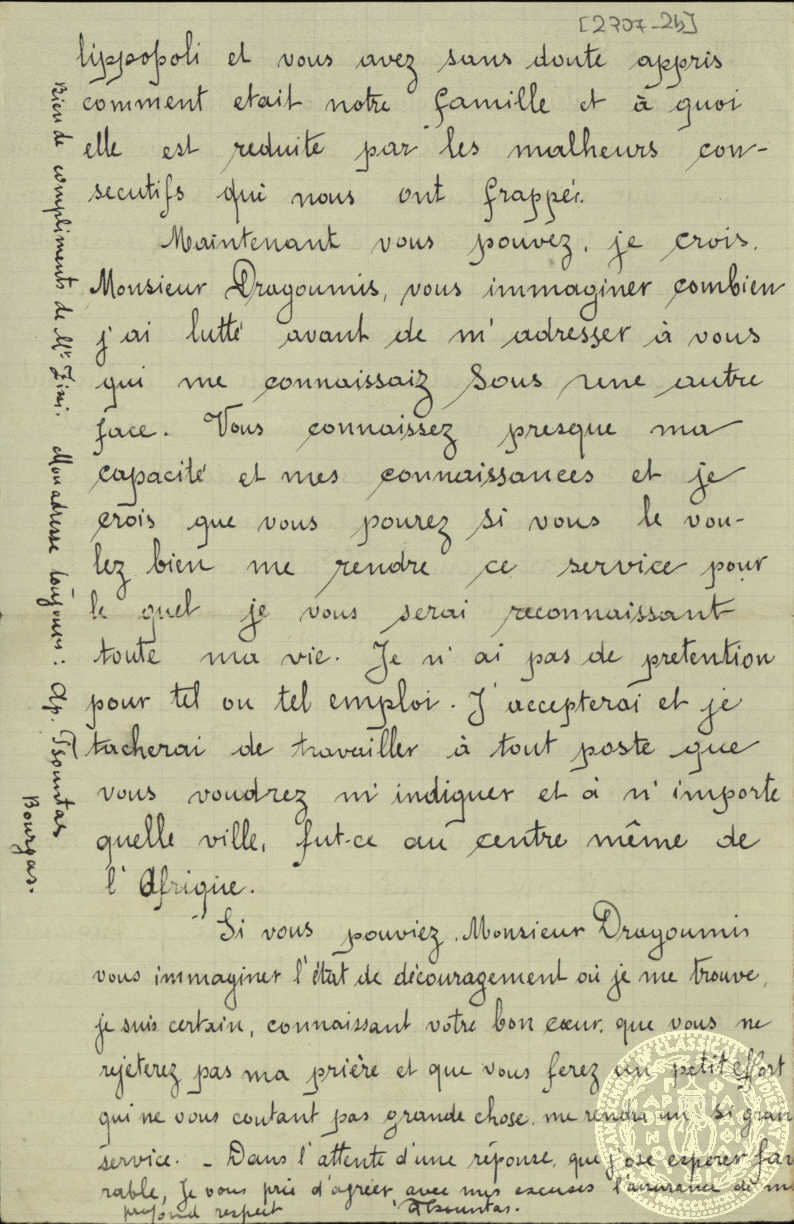 [2707-2b]
lippopoli et vous avez sans doute appris
comment etait notre famille et à quoi
elle est reduite par les malheurs con-
secutifs qui nous ont frappés.
Maintenant vous pouvez, je crois,
Monsieur Dragoumis, vous immaginer combien
j'ai lutté avant de m'adresser à vous
qui me connaissaiz sous une autre
face. Vous connaissez presque ma
capacité et mes connaissances et je
crois que vous pourez si vous le vou-
lez bien me rendre ce service pour
le quel je vous serai reconnaissant
toute ma vie. Je n'ai pas de pretention
pour tel ou tel emploi. J'accepterai et je
tacherai de travailler à tout poste que
vous voudrez m'indiquer et à n'importe
quelle ville, fut-ce au centre même de
l'Afrique.
Si vous pouviez, Monsieur Dragoumis
vous immaginer l'état de découragement où je me trouve,
je suis certain, connaissant votre bon cœur, que vous ne
rejeterez pas ma prière et que vous ferez un petit effort
qui ne vous coutant pas grande chose, me rendra un si gran
service. - Dans l'attente d'une réponse, que j'ose esperer favo
rable, Je vous prie d'agréer avec mes excuses l'assurance de m
profond respect
ATsountas.
Bien de compliments de Mr Zini. Mon adresse toujours: Ap. Tsountas
Bourgas.